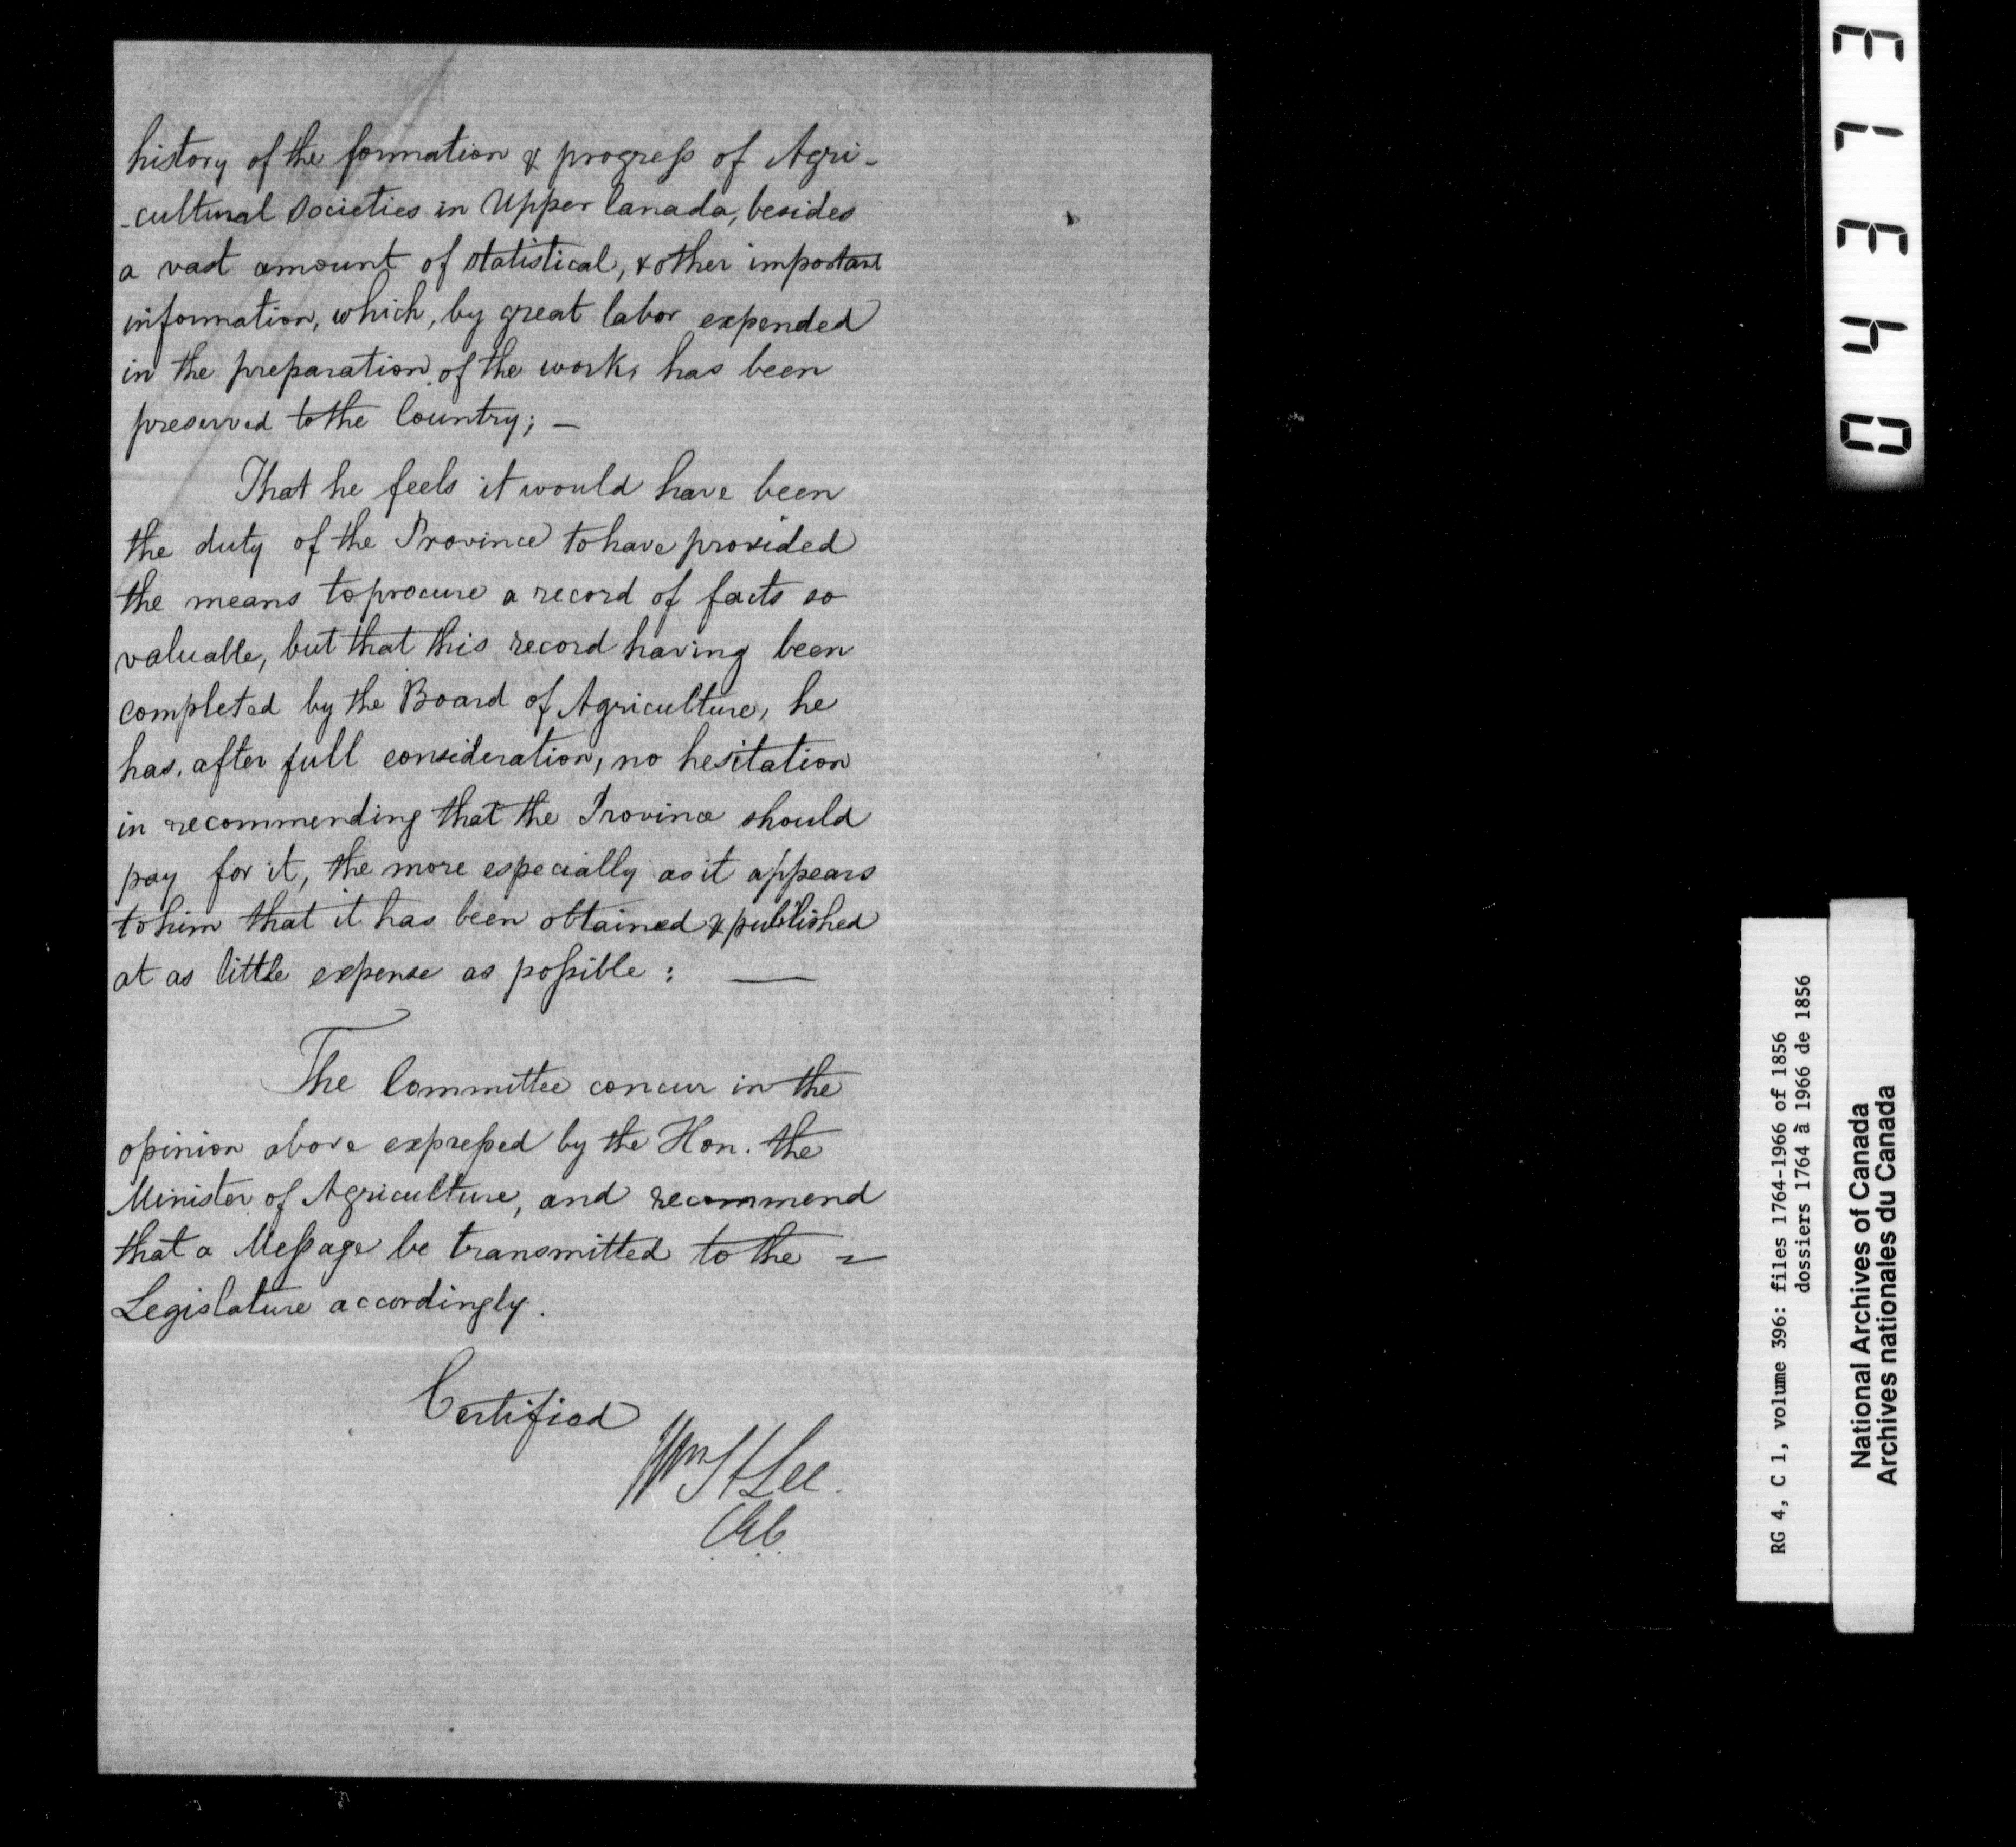 history of the formation & progress of Agri-
-cultural Societies in Upper Canada, besides
a vast amount of statistical, & other important
information, which, by great labor expended
in the preparation of the work, has been
preserved to the Country; —
That he feels it would have been
the duty of the Province to have provided
the means to procure a record of facts so
valuable, but that this record having been
completed by the Board of Agriculture, he
has, after full consideration, no hesitation
in recommending that the Province should
pay for it, the more especially as it appears
to him that it has been obtained & published
at as little expense as possible: —
The Committee concur in the
opinion above expressed by the Hon. the
Minister of Agriculture, and recommend
that a Message be transmitted to the =
Legislature accordingly.
Certified
Wm H Lee.
C.E.C.
04313
RG 4, C 1, volume 396: files 1764-1966 of 1856
dossiers 1764 à 1966 de 1856
National Archives of Canada
Archives nationales du Canada